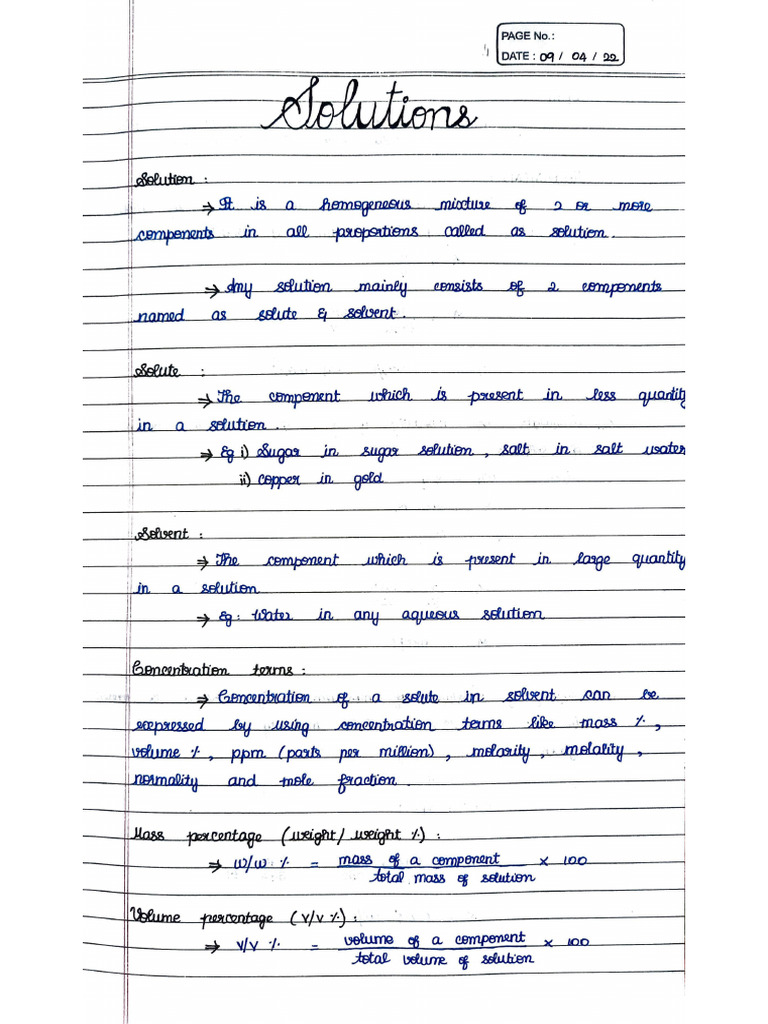 PAGE No.:
DATE : 09 / 04 / 22
Solutions
Solution :
→ It is a homogeneous mixture of 2 or more
components in all proportions called as solution.
→ Any solution mainly consists of 2 components
named as solute & solvent.
Solute :
→ The component which is present in less quantity
in a solution.
→ Eg i) Sugar in sugar solution, salt in salt water
ii) copper in gold
Solvent :
→ The component which is present in large quantity
in a solution
→ Eg: Water in any aqueous solution
Concentration terms :
→ Concentration of a solute in solvent can be
expressed by using concentration terms like mass %,
volume %, ppm (parts per million), molarity, molality,
normality and mole fraction.
Mass percentage (weight/weight %) :
→ w/w % = mass of a component / total mass of solution × 100
Volume percentage (v/v %) :
→ v/v % = volume of a component / total volume of solution × 100